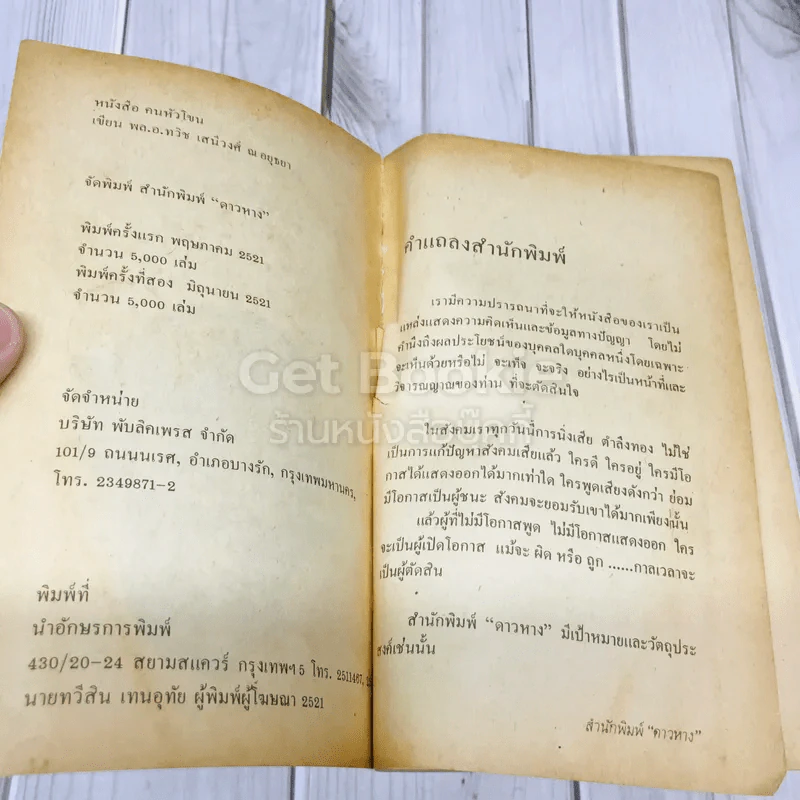 หนังสือ คนหัวโขน
เขียน พล.อ.ทวิช เสนีวงศ์ ณ อยุธยา
จัดพิมพ์ สำนักพิมพ์ “ดาวหาง”
พิมพ์ครั้งแรก พฤษภาคม 2521
จำนวน 5,000 เล่ม
พิมพ์ครั้งที่สอง มิถุนายน 2521
จำนวน 5,000 เล่ม
จัดจำหน่าย
บริษัท พับลิคเพรส จำกัด
101/9 ถนนนเรศ, อำเภอบางรัก, กรุงเทพมหานคร,
โทร. 2349871-2
พิมพ์ที่
นำอักษรการพิมพ์
430/20-24 สยามสแควร์ กรุงเทพฯ 5 โทร. 2511467,
นายทวีสิน เทนอุทัย ผู้พิมพ์ผู้โฆษณา 2521
คำแถลงสำนักพิมพ์
เรามีความปรารถนาที่จะให้หนังสือของเราเป็น
แหล่งแสดงความคิดเห็นและข้อมูลทางปัญญา โดยไม่
คำนึงถึงผลประโยชน์ของบุคคลใดบุคคลหนึ่งโดยเฉพาะ
จะเห็นด้วยหรือไม่ จะเท็จ จะจริง อย่างไรเป็นหน้าที่และ
วิจารณญาณของท่าน ที่จะตัดสินใจ
ในสังคมเราทุกวันนี้การนิ่งเสีย ตำลึงทอง ไม่ใช่
เป็นการแก้ปัญหาสังคมเสียแล้ว ใครดี ใครอยู่ ใครมีโอ
กาสได้แสดงออกได้มากเท่าใด ใครพูดเสียงดังกว่า ย่อม
มีโอกาสเป็นผู้ชนะ สังคมจะยอมรับเขาได้มากเพียงนั้น
แล้วผู้ที่ไม่มีโอกาสพูด ไม่มีโอกาสแสดงออก ใคร
จะเป็นผู้เปิดโอกาส แม้จะ ผิด หรือ ถูก ......กาลเวลาจะ
เป็นผู้ตัดสิน
สำนักพิมพ์ “ดาวหาง” มีเป้าหมายและวัตถุประ
สงค์เช่นนั้น
สำนักพิมพ์ “ดาวหาง”
Get Book!
ร้านหนังสือบุ๊กกี้